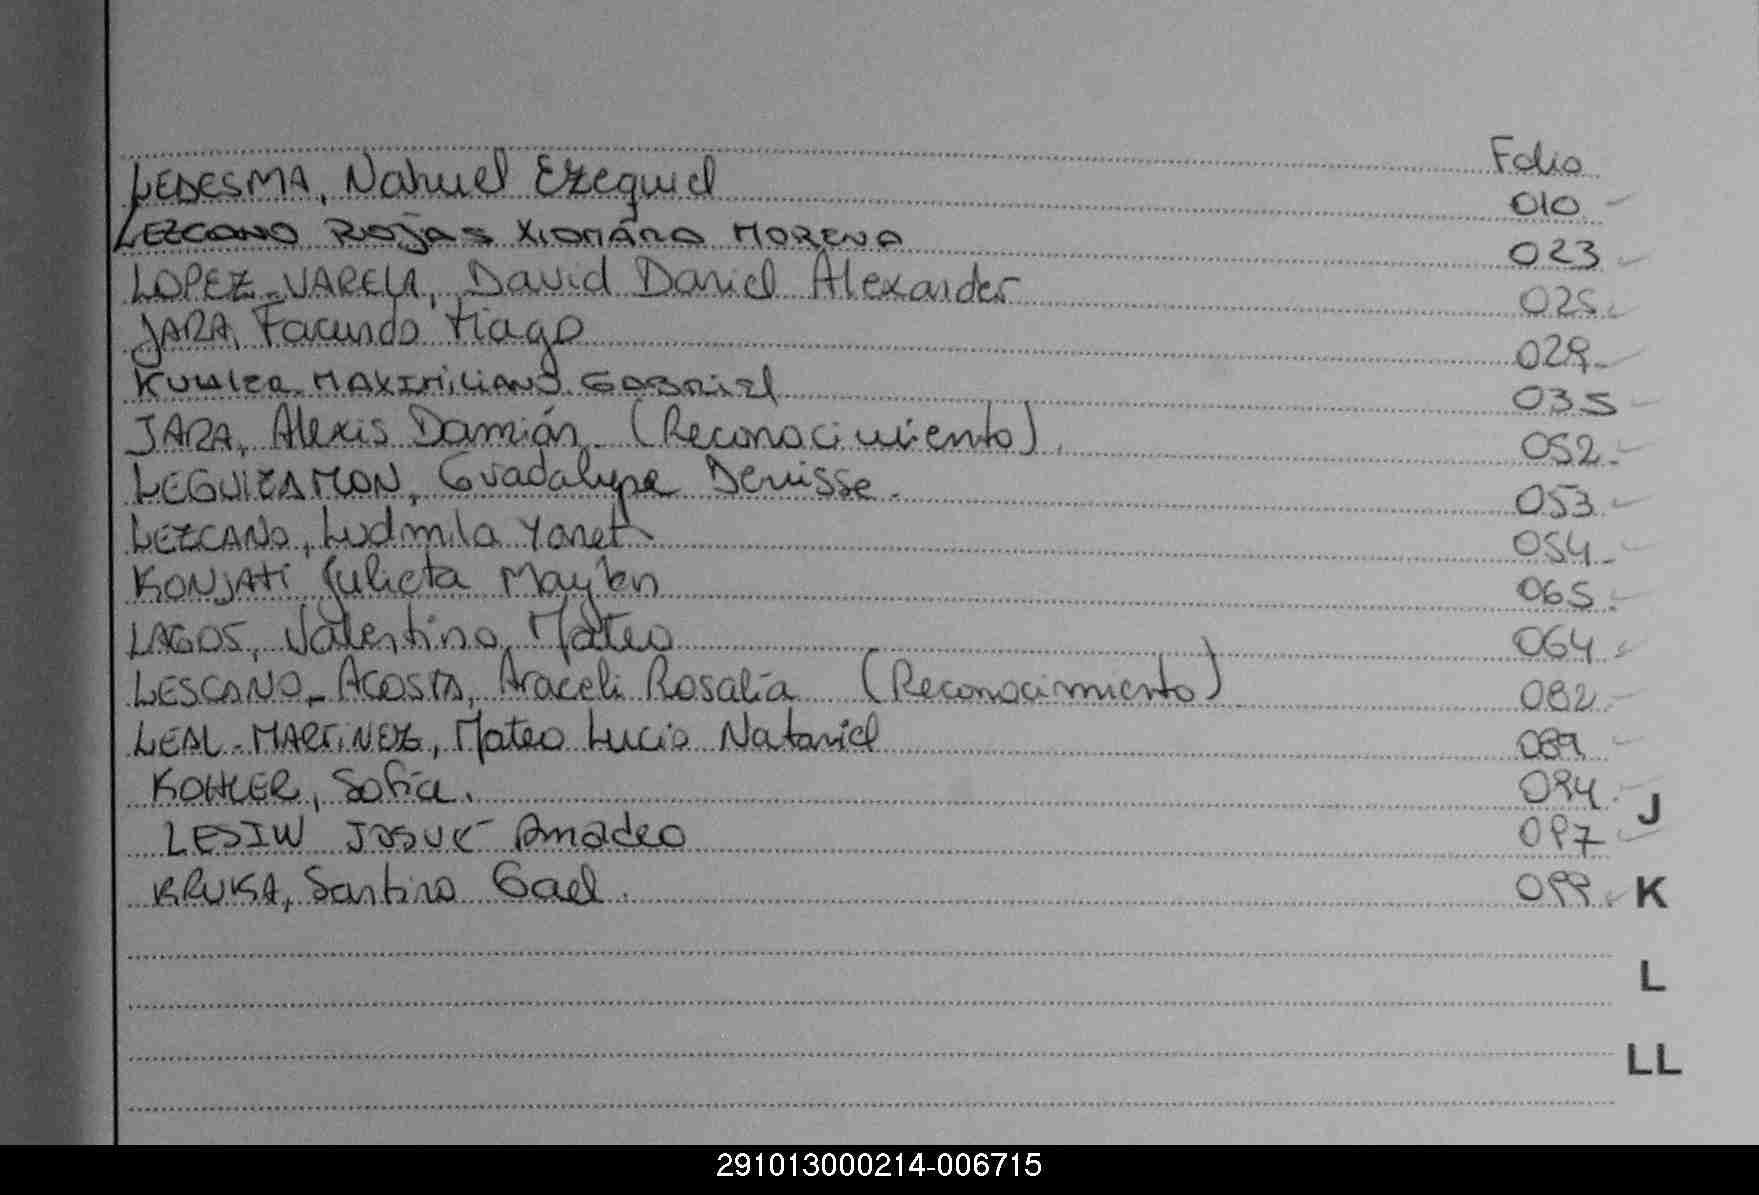 Folio
LEDESMA, Nahuel Ezequiel 010
LEZCANO RIOJAS XIOMARA MORENA 023
LOPEZ-VARELA, David Daniel Alexander 025
JARA, Facundo Tiago 029
MAXIMILIANO GABRIEL 035
JARA, Alexis Damián (Reconocimiento) 052
LEGUIZAMON, Guadalupe Denisse 053
LEZCANO, Ludmila Yanet 054
KONJATI Julieta Maylen 065
LAGOS, Valentino Mateo 064
LESCANO-ACOSTA, Araceli Rosalía (Reconocimiento) 082
LEAL-MARTINEZ, Mateo Lucio Nataniel 089
KOHLER, Sofía. 094
J
LESIW JOSUÉ Amadeo 097
KRUKA, Santino Gael. 099
K
L
LL
291013000214-006715